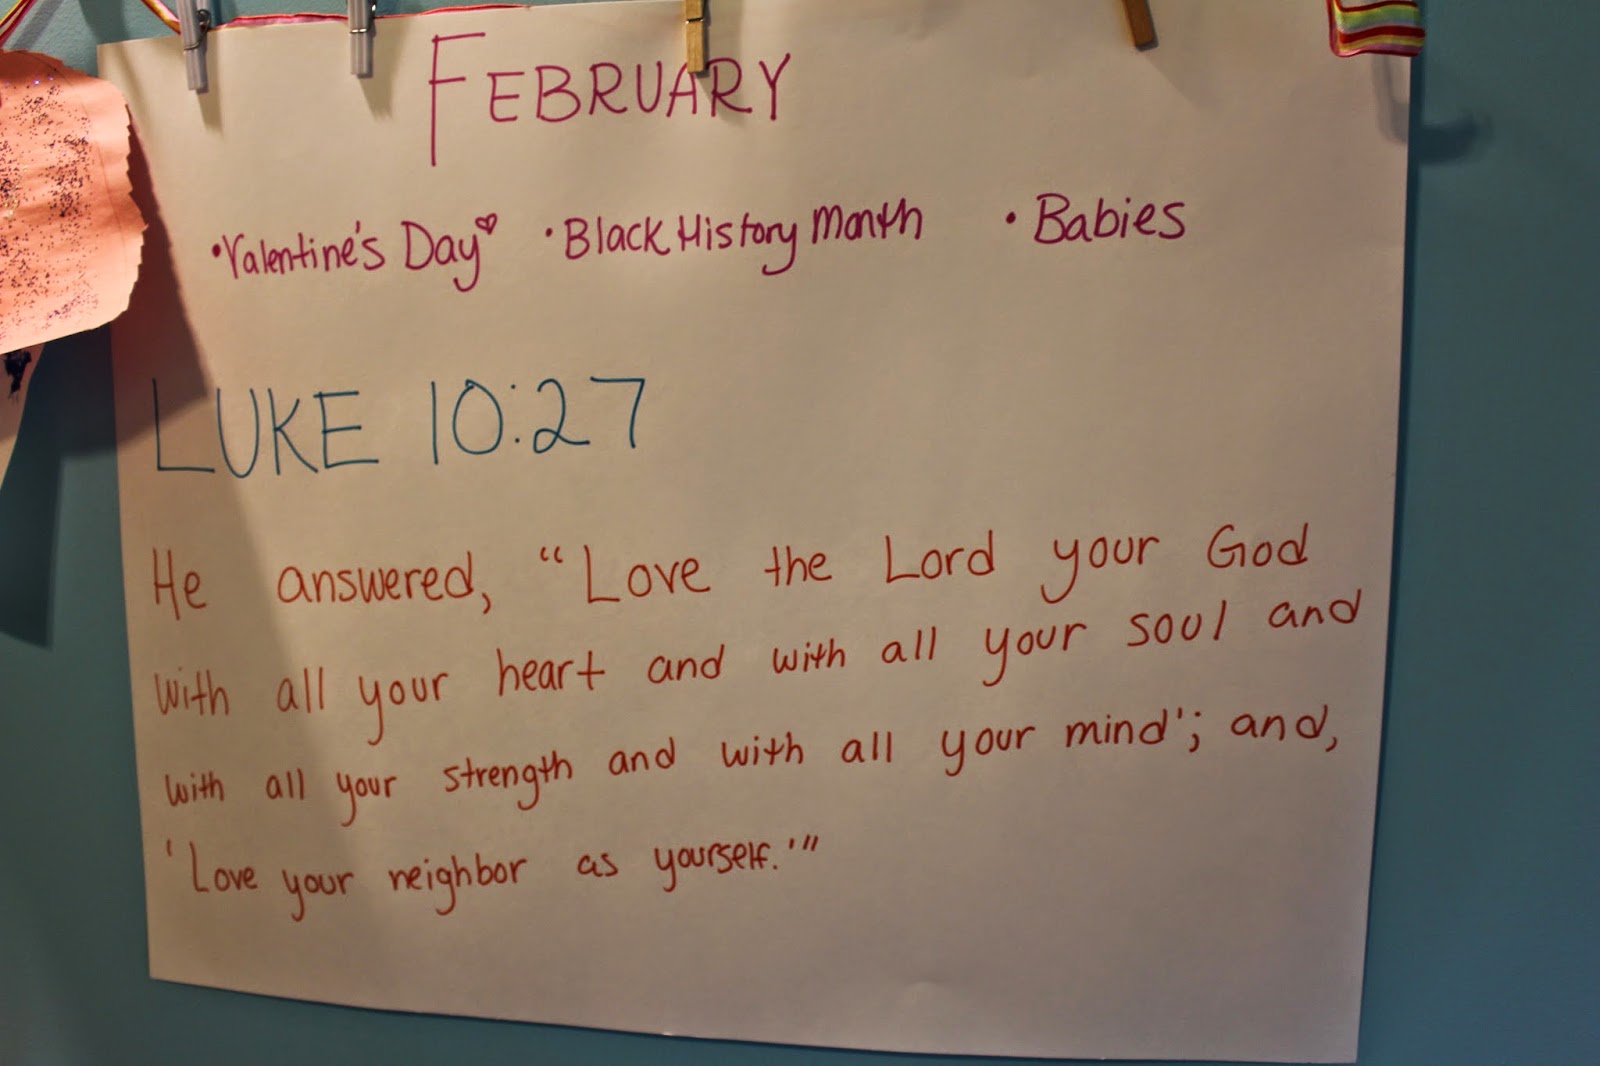 FEBRUARY
•Valentine's Day♡ •Black History Month •Babies
LUKE 10:27
He answered, “Love the Lord your God
with all your heart and with all your soul and
with all your strength and with all your mind'; and,
'Love your neighbor as yourself.'”